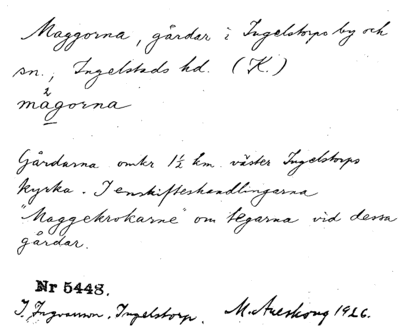 Maggorna, gårdar i Ingelstorps by och
sn., Ingelstads hd. (K.)
2
magorna
Gårdarna omkr 1½ km. väster Ingelstorps
kyrka. I enskifteshandlingarna
"Maggekrokarne" om tegarna vid dessa
gårdar.
Nr 5448.
I. Ingvarson, Ingelstorp. M. Areskoug 1926.